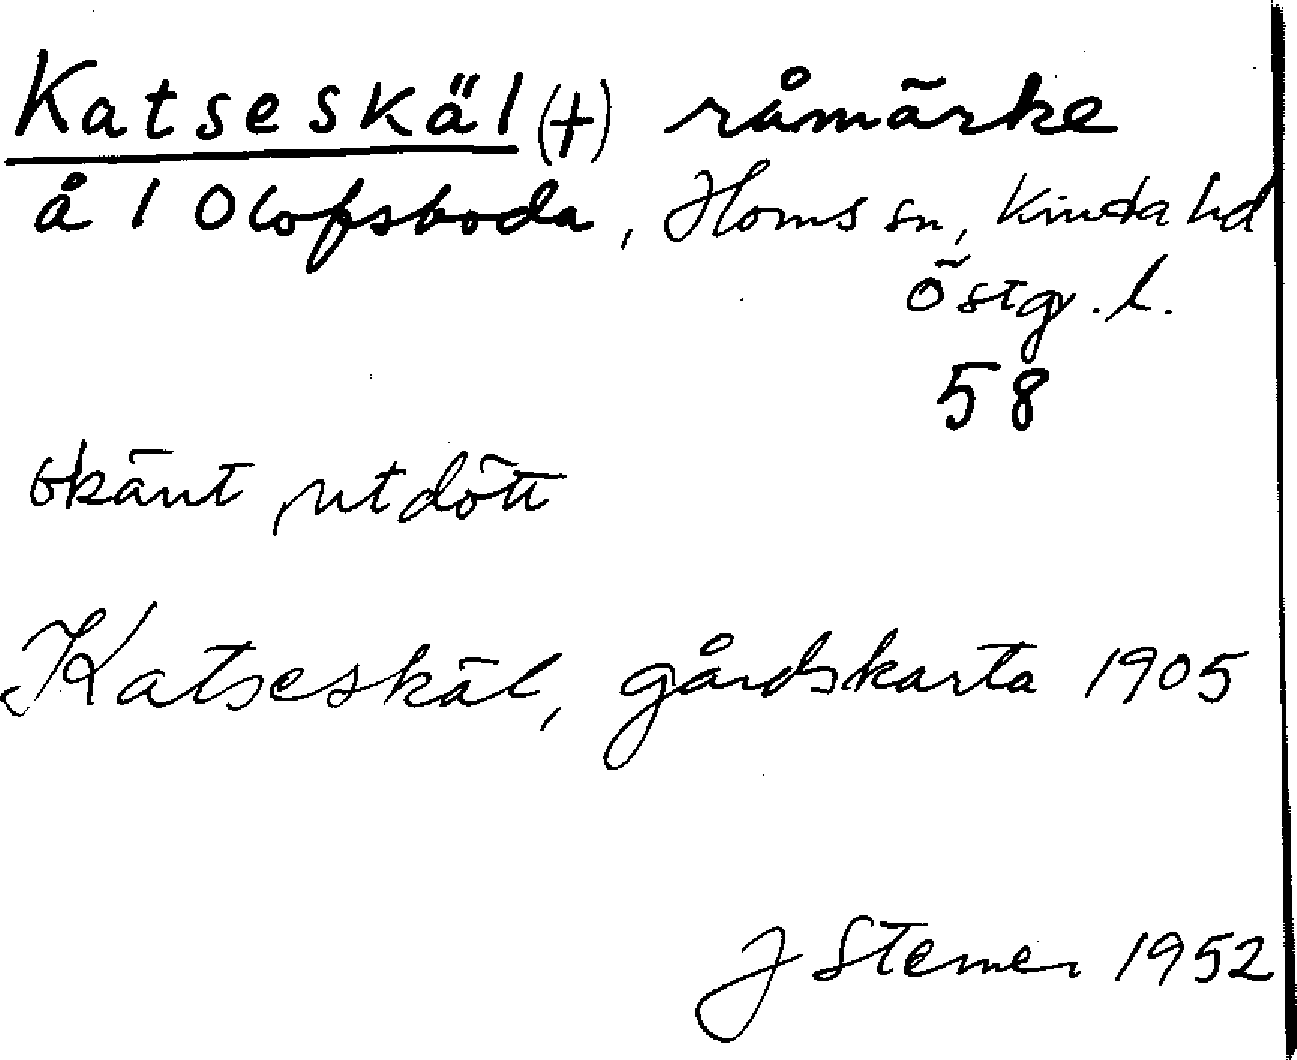 Katseskäl (†) råmärke
å 1 Olofsboda, Horns sn, Kinda hd
Östg. l.
58
okänt, utdött
Katseskäl, gårdskarta 1905
J Sterner 1952